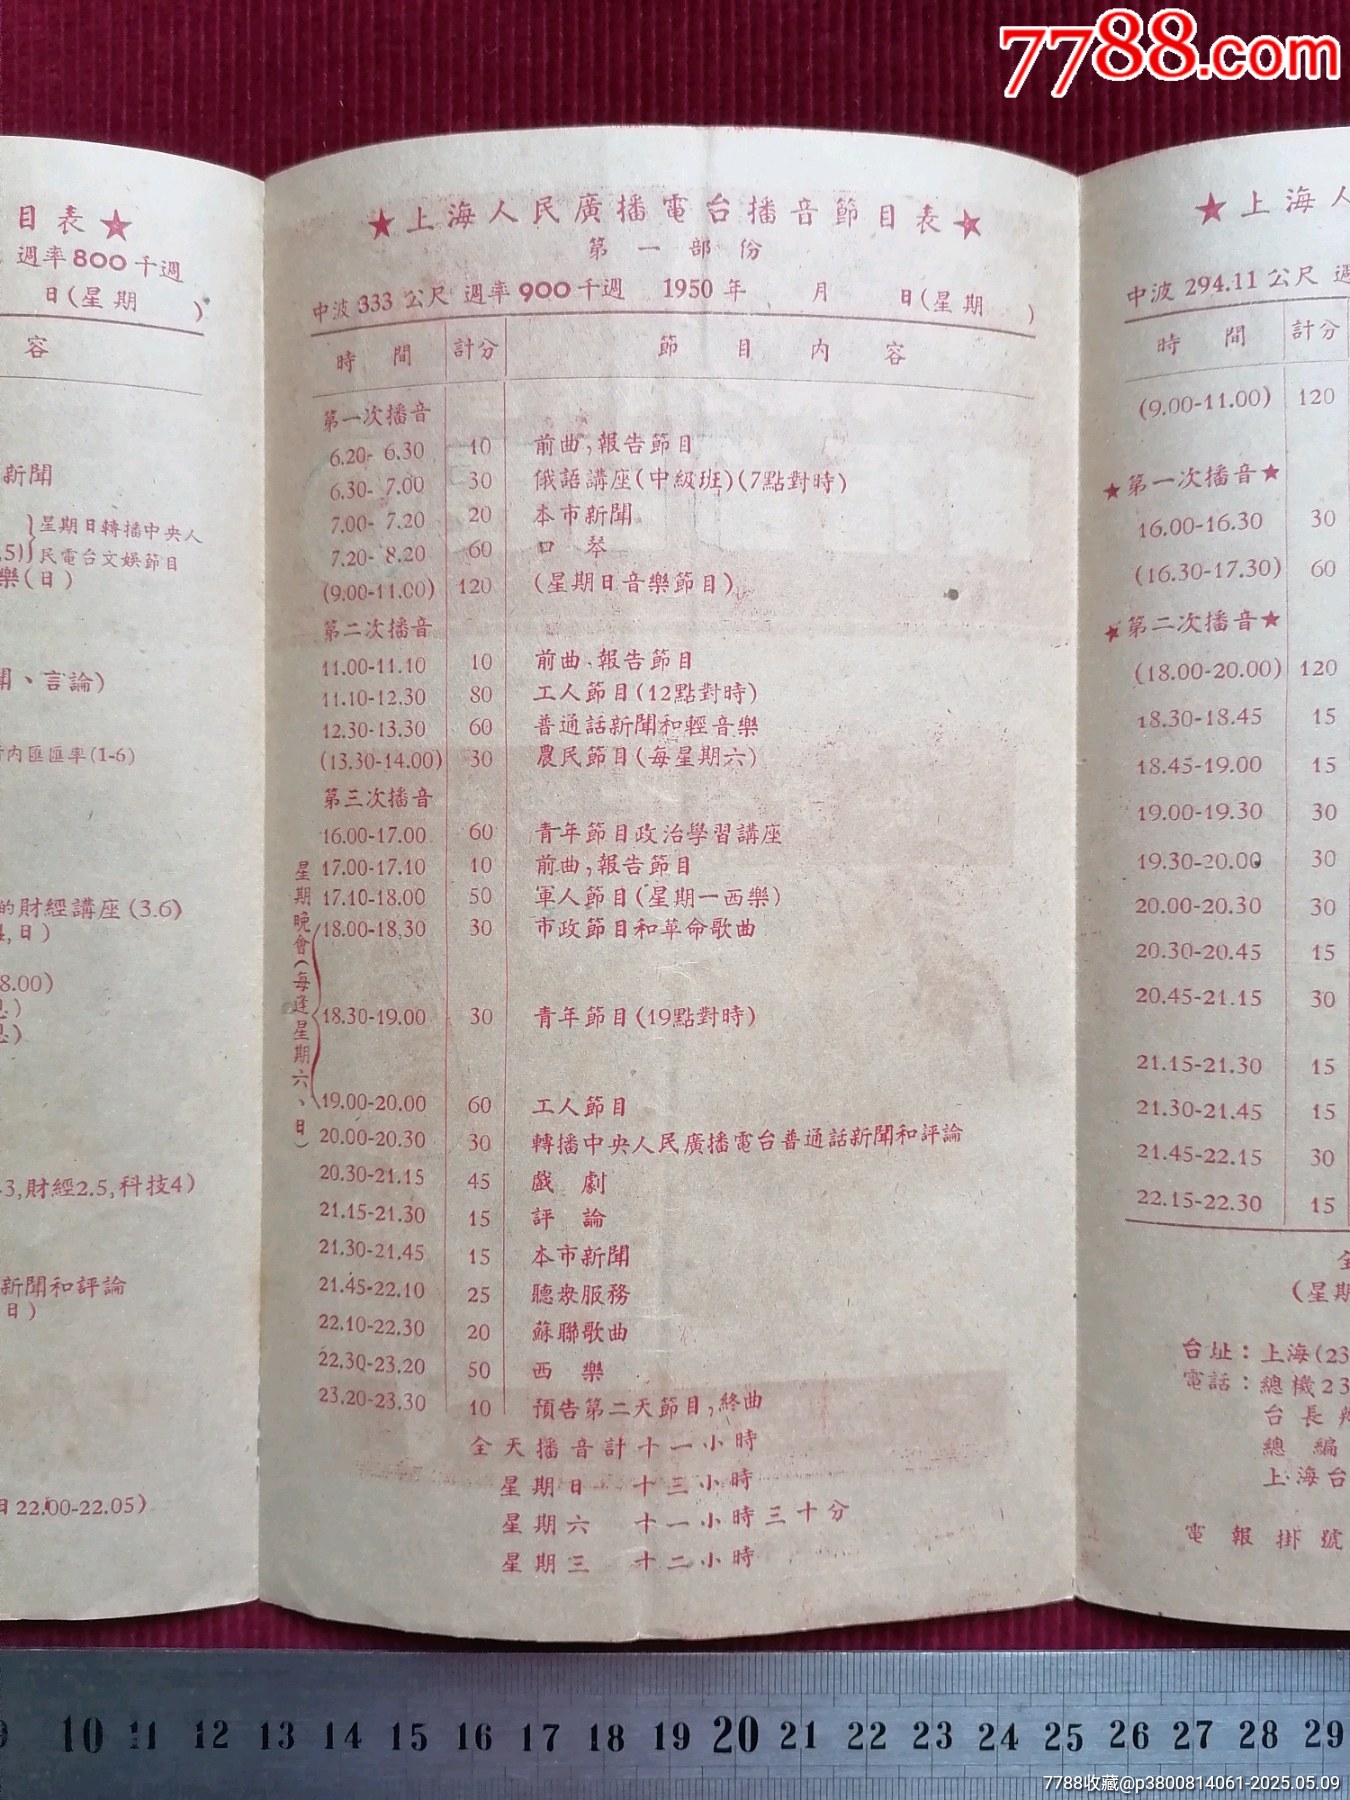 7788.com
目表★
週率800千週
日(星期 )
容
新聞
星期日轉播中央人
5)民電台文娛節目
樂(日)
、言論)
內匯匯率(1-6)
的財經講座(3.6)
4,日)
8.00)
3,財經2.5,科技4)
新聞和評論
日)
日22.00-22.05)
★上海人民廣播電台播音節目表★
第一部份
中波 333 公尺 週率 900 千週 1950 年 月 日(星期 )
時間 計分 節目內容
第一次播音
6.20- 6.30 10 前曲,報告節目
6.30- 7.00 30 俄語講座(中級班)(7點對時)
7.00- 7.20 20 本市新聞
7.20- 8.20 60 口琴
(9.00-11.00) 120 (星期日音樂節目)
第二次播音
11.00-11.10 10 前曲,報告節目
11.10-12.30 80 工人節目(12點對時)
12.30-13.30 60 普通話新聞和輕音樂
(13.30-14.00) 30 農民節目(每星期六)
第三次播音
16.00-17.00 60 青年節目政治學習講座
17.00-17.10 10 前曲,報告節目
17.10-18.00 50 軍人節目(星期一西樂)
18.00-18.30 30 市政節目和革命歌曲
18.30-19.00 30 青年節目(19點對時)
19.00-20.00 60 工人節目
星期晚會(每逢星期六、日)
20.00-20.30 30 轉播中央人民廣播電台普通話新聞和評論
20.30-21.15 45 戲劇
21.15-21.30 15 評論
21.30-21.45 15 本市新聞
21.45-22.10 25 聽衆服務
22.10-22.30 20 蘇聯歌曲
22.30-23.20 50 西樂
23.20-23.30 10 預告第二天節目,終曲
全天播音計十一小時
星期日 十三小時
星期六 十一小時三十分
星期三 十二小時
★上海人
中波 294.11 公尺 週
時間 計分
(9.00-11.00) 120
★第一次播音★
16.00-16.30 30
(16.30-17.30) 60
★第二次播音★
(18.00-20.00) 120
18.30-18.45 15
18.45-19.00 15
19.00-19.30 30
19.30-20.00 30
20.00-20.30 30
20.30-20.45 15
20.45-21.15 30
21.15-21.30 15
21.30-21.45 15
21.45-22.15 30
22.15-22.30 15
全
(星期
台址:上海(23
電話:總機23
台長
總編
上海台
電報掛號
10 11 12 13 14 15 16 17 18 19 20 21 22 23 24 25 26 27 28 29
7788收藏@p3800814061-2025.05.09